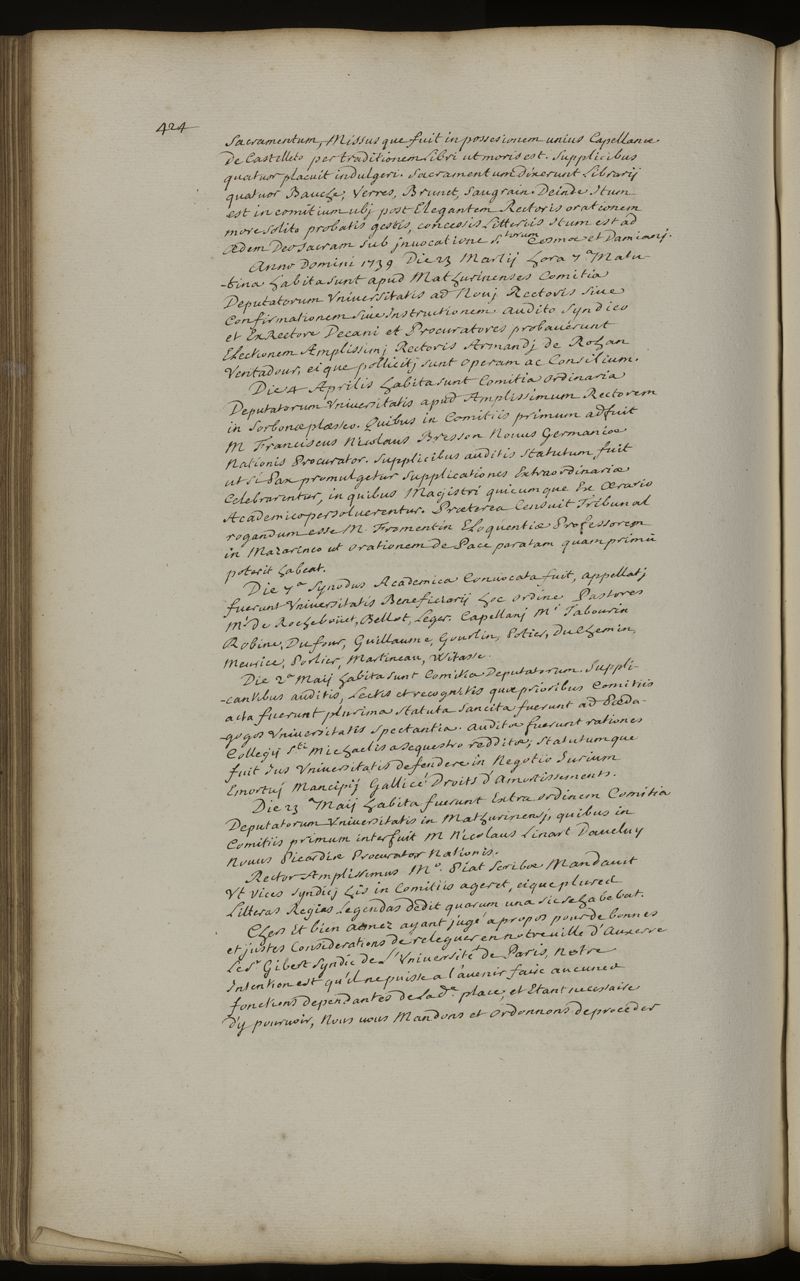 424
Sacramentum, Missusque fuit in possesionem unius Capellaniæ
De Castelleto per traditionem Libri ut moris est. Supplicibus
quatuor placuit indulgeri. Sacramentum Dixerunt Librarij
quatuor Bauche, Verres, Brunet, Saugrain. Deinde Itum
est in comitium ubj post Elegantem Rectoris orationem
more solito probatis gestis, concessis Litteris Itum est ad
Ædem Deo Sacram sub jnvocatione S.torum Cosmæ et Damianj.
Anno Domini 1739 Die 23 Martij hora 7a Matu-
-tina habita sunt apud Mathurinenses Comitia
Deputatorum Universitatis ad Novj Rectoris sive
Confirmationem sive Instructionem audito Syndico
et Ex Rectore Decani et Procuratores probaverunt
Electionem Amplissimj Rectoris Armandj de Rohan
Ventadour, eique polliciti sunt Operam ac Consilium.
Die 4 Aprilis habita sunt Comitia ordinaria
Deputatorum Universitatis apud Amplissimum Rectorem
in Sorbonæ plæsseo. Quibus in Comitiis primum adfuit
M Franciscus Nicolaus Bresson Novus Germaniæ
Nationis Procurator. Supplicibus auditis Statutum fuit
ut si Pax promulgetur Supplicationes Extraordinariæ
Celebrarentur, in quibus Magistri quicumque Ex Ærario
Academico persolverentur. Præterea Censuit Tribunal
rogandum esse M. Fromentin Eloquentiæ Professorem
in Mazarinæo ut orationem de Pace paratam quamprimũ
poterit habeat.
Die 7a Synodus Academica Convocata fuit, appellatj
fuerunt Universitatis Beneficiarij hoc ordine Pastores
Mrs de Rocheboüet, Bellot, Leger. Capellanj Mrs Tabourin
Robine, Dufour, Guillaume, Gourlin, Potier, Duchemin,
Meurice, Porlier, Martineau, Witasse.
Die 2a Maij habita sunt Comitia Deputatorum. Suppli-
-cantibus auditis, Lectis et recognitis quæ prioribus Comitiis
acta fuerunt plurima Statuta Sancita fuerunt ad Pæda-
-gogos Universitatis spectantia. Audita fuerunt rationes
Collegij Sti Michaelis a sequestro redditæ; Statutumque
fuit Jus Universitatis defendere in Negotio Jurium
Emortuj Mancipij Gallicé Droits d'Amortissements.
Die 23a Maij habita fuerunt Extra ordinem Comitia
Deputatorum Universitatis in Mathurinensj, quibus in
Comitiis primum interfuit M Nicolaus Linart Daveluy
Novus Picardiæ Procurator Nationis.
Rector Amplissimus Mo. Piat Scribæ Mandavit
Ut vices Syndicj his in Comitiis ageret, eique plures
Litteras Regias Legendas dedit quarum una sic se habebat.
Chers et bien amez ayant jugé a propos pour de bonnes
et justes Considerations de releguer en notre ville d'Auxerre
Le Sr Gibert Syndic de L'Université de Paris, Notre
Intention est qu'il ne puisse a l'avenir faire aucunes
fonctions dependantes de Lade place, et Etant necessaire
D'y pourvoir, Nous vous Mandons et Ordonnons de proceder